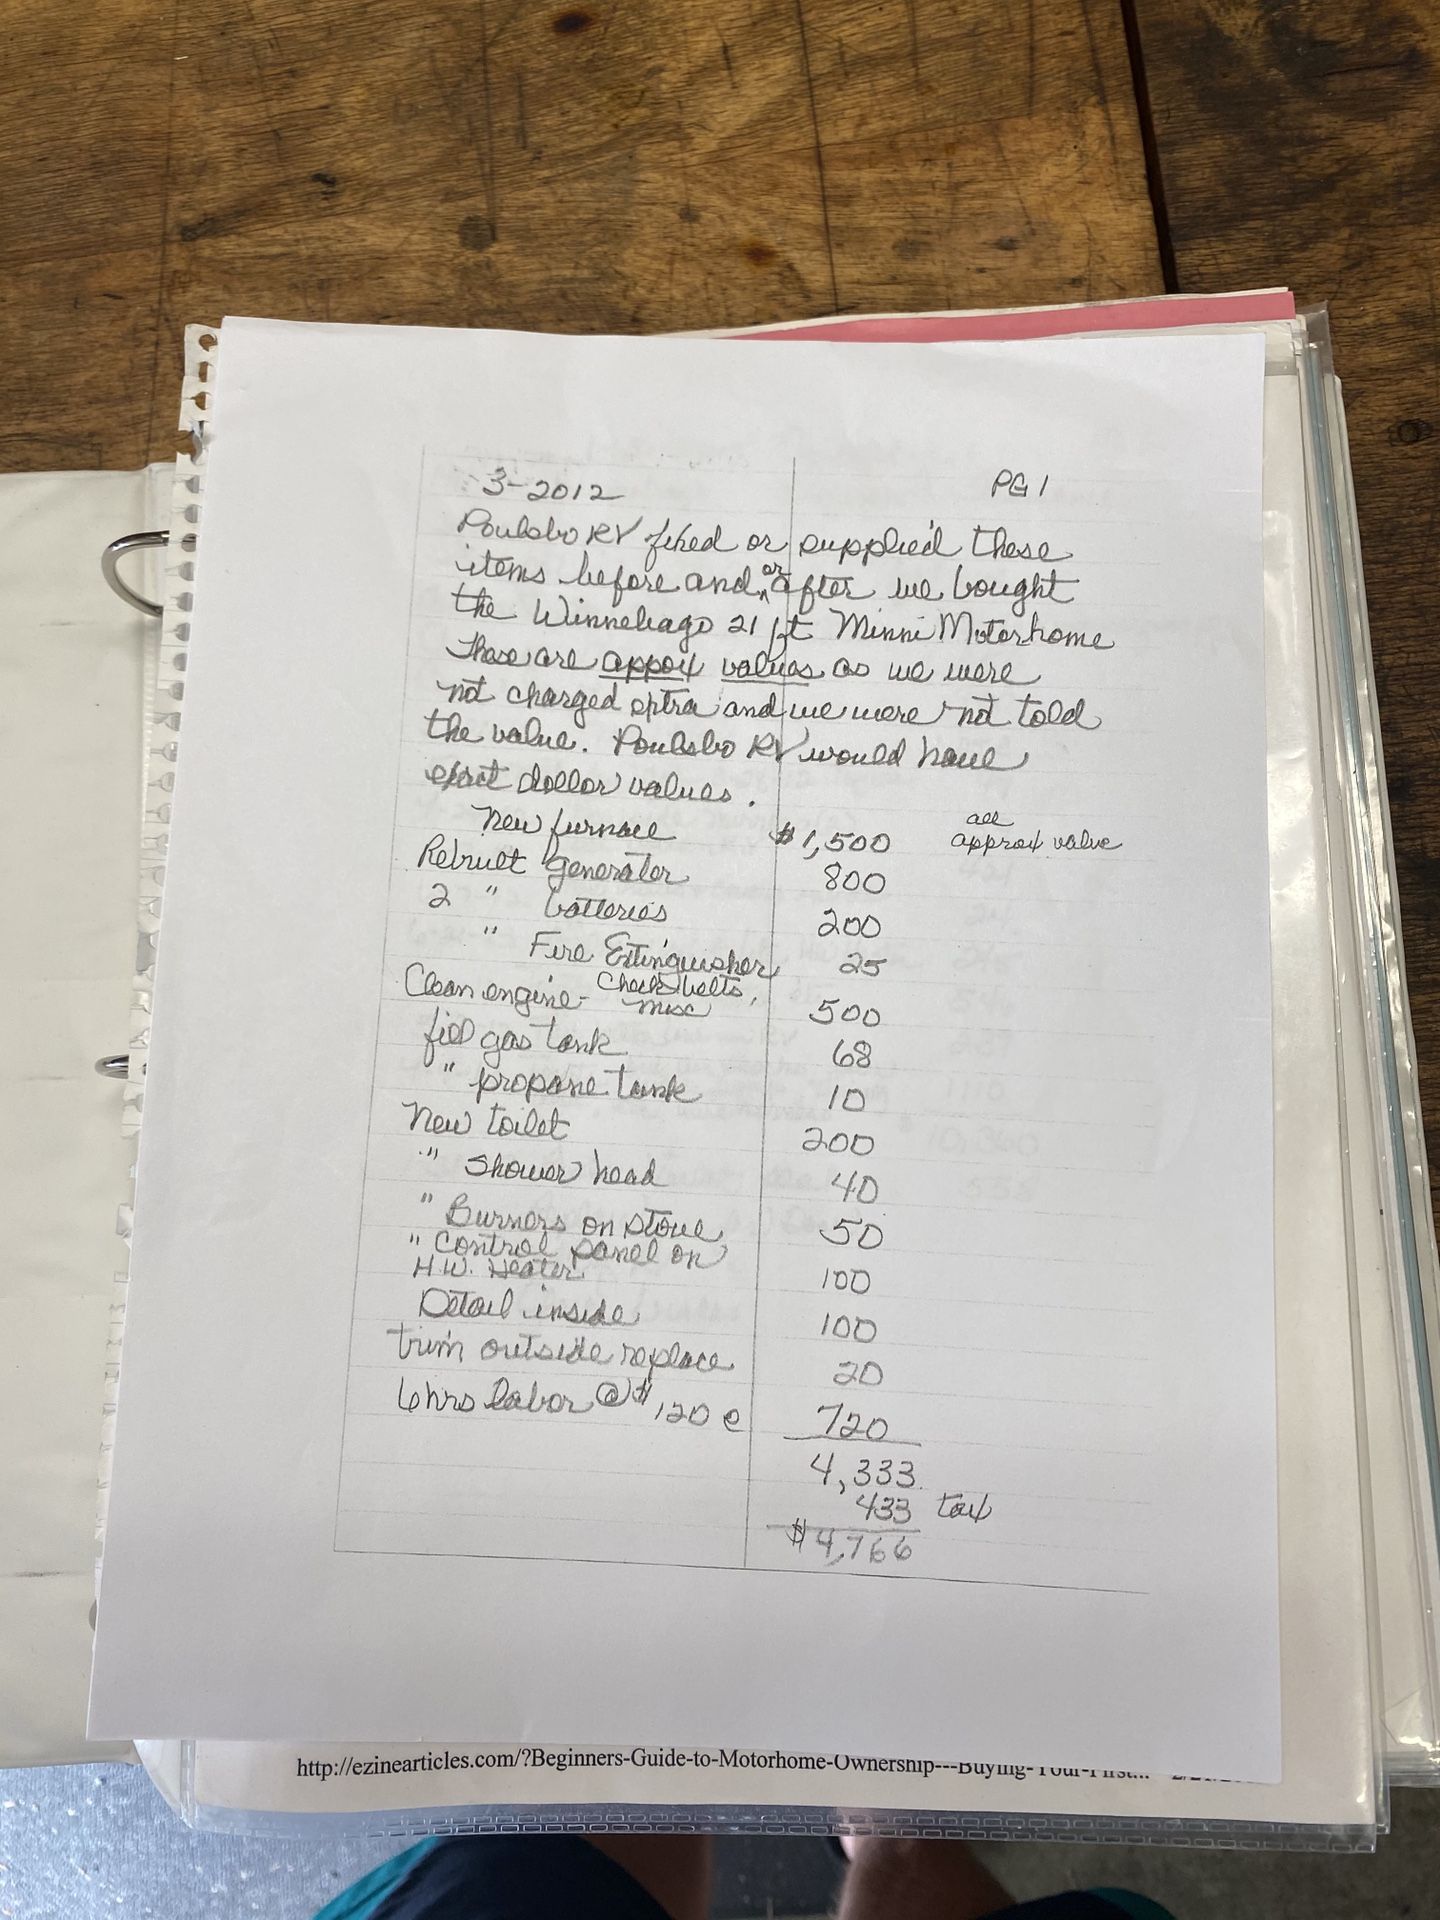 3-2012 PG 1
Poulsbo RV fixed or supplied these
items before and or after we bought
the Winnebago 21 ft Minni Motorhome
These are appox values as we were
not charged extra and we were not told
the value. Poulsbo RV would have
exact dollar values.
New furnace $1,500 all approx value
Rebuilt generator 800
2 " batteries 200
" Fire Extinguisher 25
Clean engine - Check belts, misc 500
fill gas tank 68
" propane tank 10
New toilet 200
" Shower head 40
" Burners on stove 50
" Control panel on
H.W. Heater 100
Detail inside 100
trim outside replace 20
6 hrs labor @ $120 e 720
4,333
433 tax
$4,766
http://ezinearticles.com/?Beginners-Guide-to-Motorhome-Ownership---Buying-Your-First...